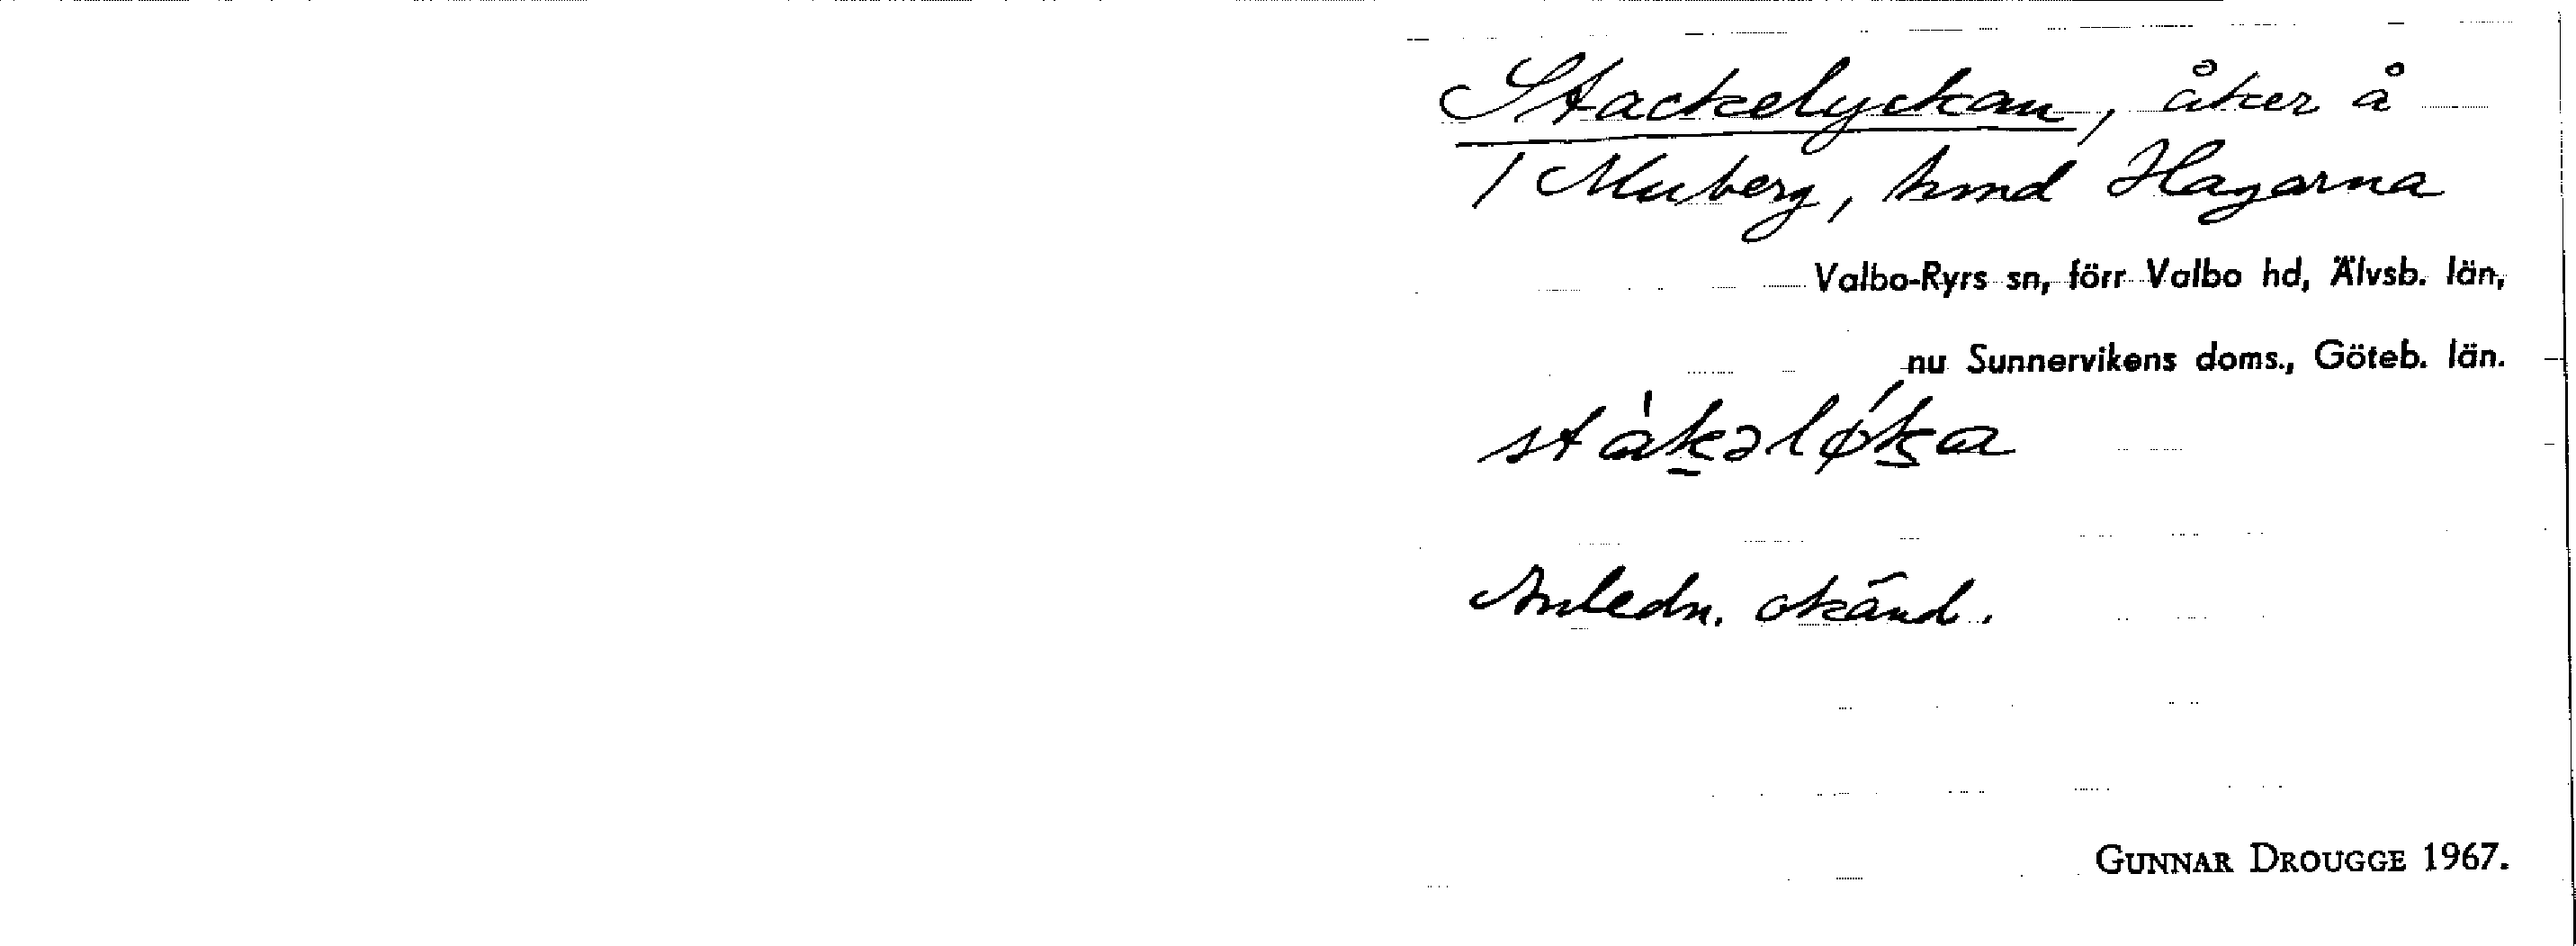 Stackelyckan, åker å
1 Muberg, hmd Hagarna
Valbo-Ryrs sn, förr Valbo hd, Älvsb. län,
nu Sunnervikens doms., Göteb. län.
stàk̠əlǿk̠a
Anledn. okänd.
GUNNAR DROUGGE 1967.